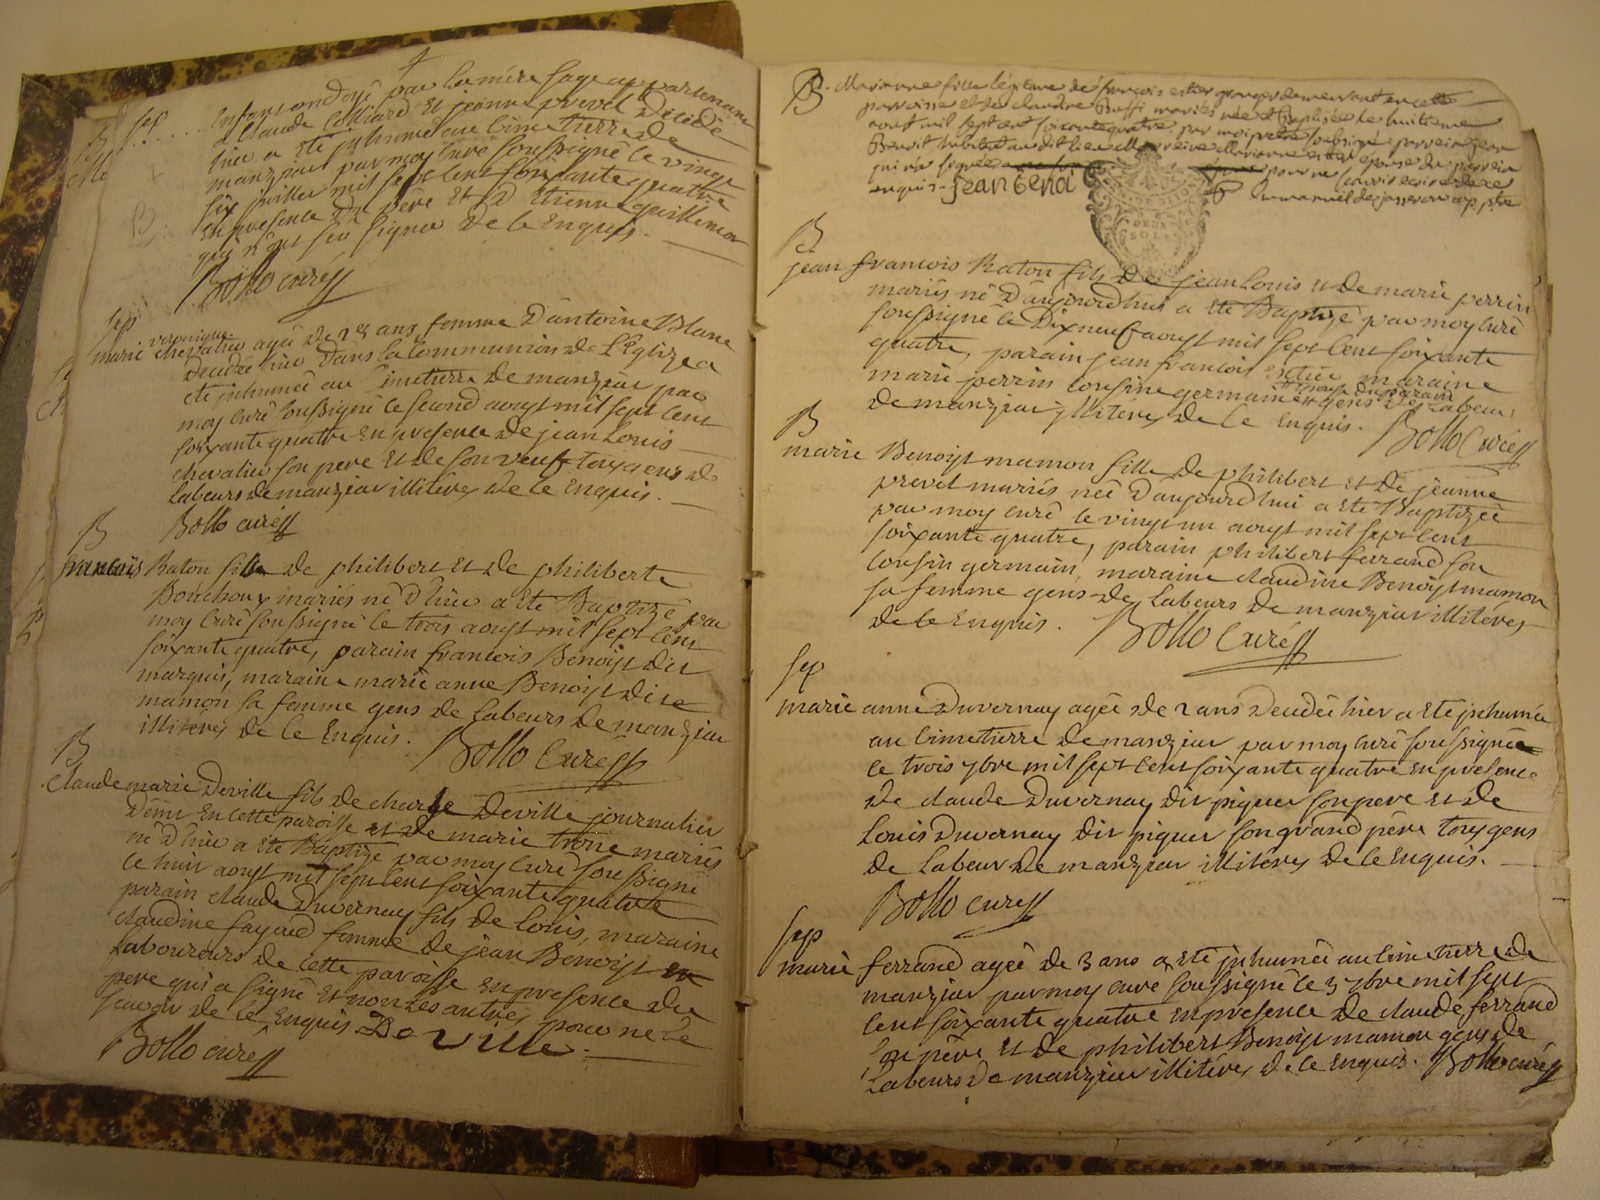 Sep
Enfant ondoyé par la mère sage appartenant
a Claude Colliard et jeanne prevel Décédé
hier a été inhumé au Cimetierre de
manziat par moy curé soussigné le vingt
six juillet mil sept cent soixante quatre
En presence du père Et Etienne guillemot
qui n'ont seu signer De ce Enquis.
Bollo curé
Sep
marie veronique
chevalier agée De 28 ans femme D'antoine Blanc
Decedée hier Dans la Communion de L'Eglize a
eté inhumée au Cimetierre De manziat par
moy Curé soussigné le second aoust mil sept cent
soixante quatre En presence De jean Louis
chevalier son pere Et de son veuf tous gens de
Labeurs de manziat illiteres De Ce Enquis.
Bollo curé
B
francois Raton fils de philibert Et De philiberte
Bouchoux mariés né D'hier a Eté Baptizé par
moy Curé soussigné le trois aoust mil sept cent
soixante quatre, parain francois Benoist dit
marquis, maraine marie anne Benoist dite
mamon sa femme gens de Labeurs De manziat
illiterés de ce Enquis.
Bollo Curé
B
Claude marie Deville fils de charle Deville journalier
Dem. En cette paroisse et de marie mariés
né D'hier a Eté Baptizé par moy Curé soussigné
le huit aoust mil sept cent soixante quatre
parain claude Duvernay fils de Louis, maraine
claudine fayard femme de jean Benoist
Laboureurs de cette paroisse En presence du
pere qui a signé Et non les autres pour ne le
scavoir de ce Enquis. De ville
Bollo curé
B. Marianne fille légitime de françois demeurant en cette
parroisse et de claudine mariés née et Baptisée le huitieme
aout mil sept cent soixante quatre par moi prêtre soussigné parrein jean
Benoit habitant au dit lieu Marreine Marianne epouse du parrein
qui a signé pour ne
enquis. jean Benoi
B
jean francois Raton fils De jean Louis et de marie perrin
mariés né D'aujourdhui a été Baptizé par moy Curé
soussigné le Dix neuf aoust mil sept cent soixante
quatre, parain jean francois maraine
marie perrin cousine germaine gens de Labeur
de manziat illiteres de ce Enquis. Bollo Curé
B
marie Benoist mamon fille de philibert et de jeanne
prevel mariés née D'aujourd'hui a eté Baptizée
par moy curé le vingt un aoust mil sept cent
soixante quatre, parain philibert ferrand son
cousin germain, maraine claudine Benoist mamon
sa femme gens de Labeurs de manziat illiterés
de ce Enquis. Bollo Curé
Sep
marie anne Duvernay agée de 2 ans Decedée hier a Eté inhumée
au Cimetierre de manziat par moy curé soussigné
le trois 7bre mil sept cent soixante quatre En presence
De claude Duvernay dit piquer son pere Et de
Louis Duvernay dit piquer son grand père tous gens
de Labeur de manziat illiterés de ce Enquis.
Bollo curé
Sep
marie ferrand agée de 3 ans a Eté inhumée au Cimetierre de
manziat par moy curé soussigné le 3 7bre mil sept
cent soixante quatre En presence De claude ferrand
son père Et de philibert Benoist mamon gens de
Labeurs de manziat illiterés de ce Enquis. Bollo curé